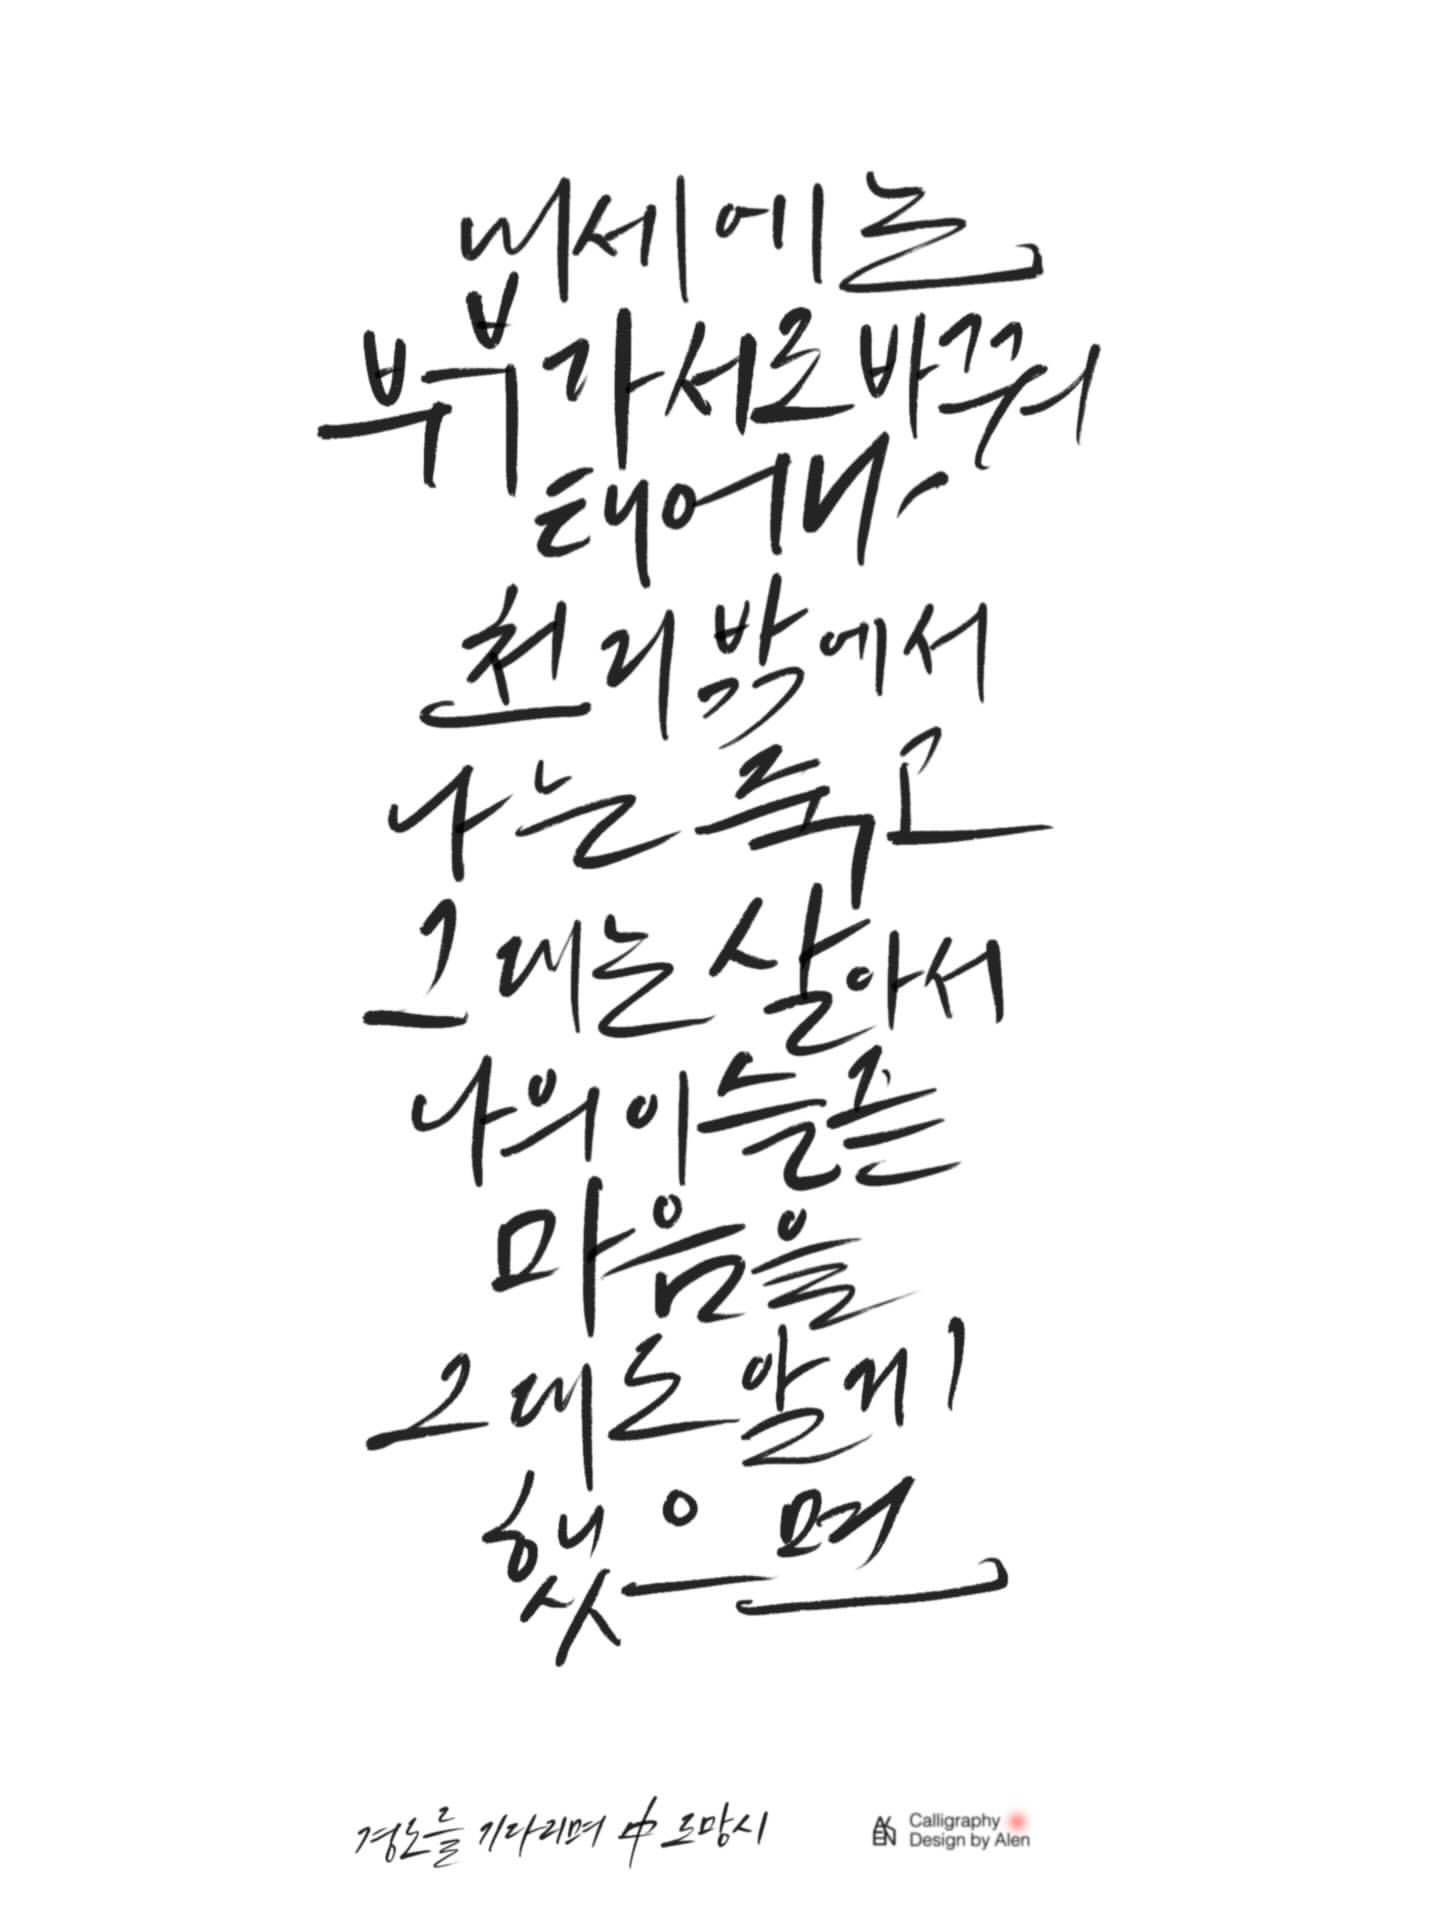 내세에는
부부가 서로 바꿔
태어나
천리 밖에서
나는 죽고
그대는 살아서
나의 이 슬픈
마음을
그대도 알게
했으면
경노를 기다리며 中 도망시
Calligraphy
Design by Alen